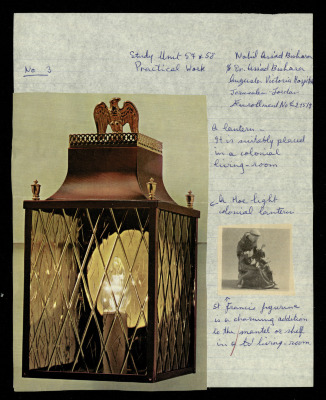 No 3
Study Unit 57 & 58
Practical Work
Nabil Assad Bishara
℅ Dr. Assad Bishara
Augusta Victoria Hospital
Jerusalem Jordan
Enrollment No
A lantern -
It is suitably placed
in a colonial
living-room
light
colonial lantern
St Francis figurine
is a charming addition
to the mantel or shelf
in a living-room